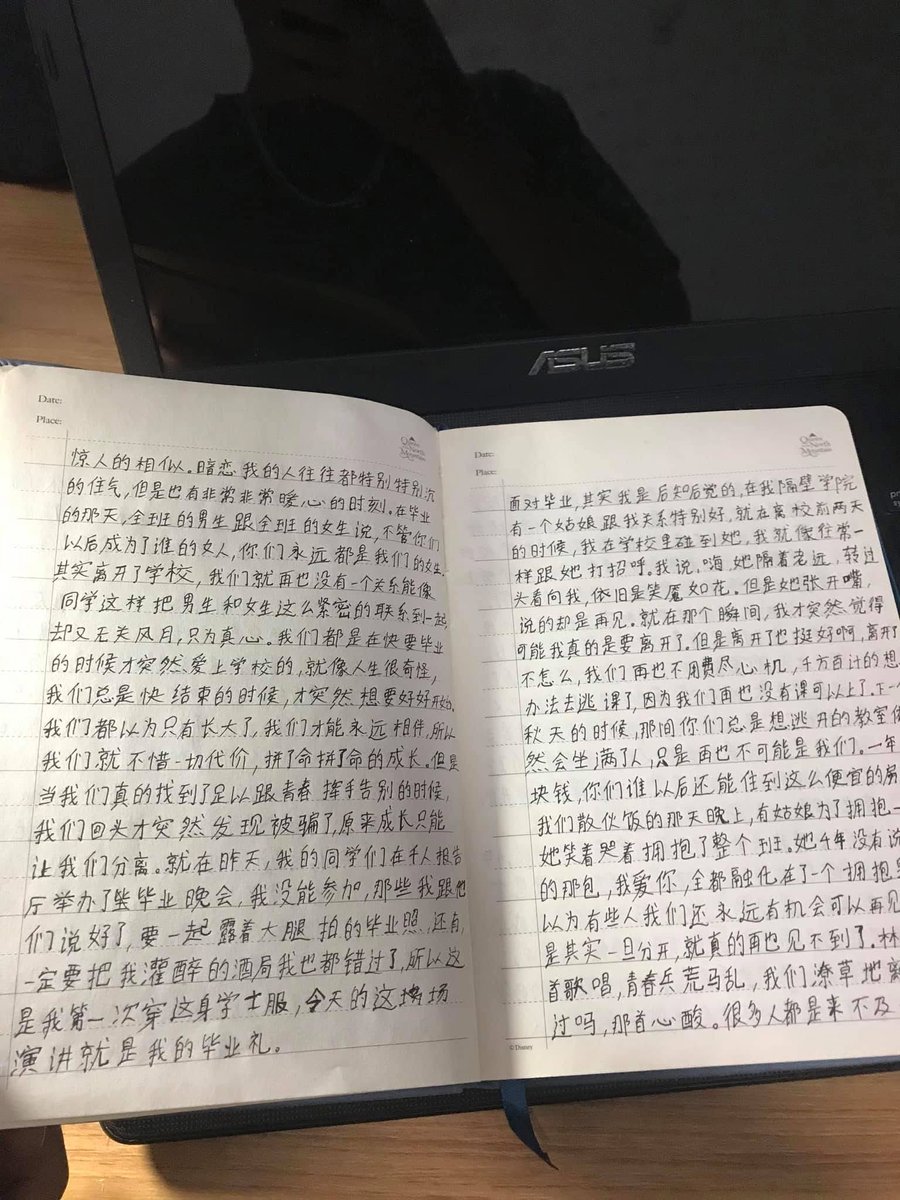 ASUS
Date:
Place:
Queen's North Mountain
惊人的相似。暗恋我的人往往都特别特别沉
的住气,但是也有非常非常暖心的时刻。在毕业
的那天,全班的男生跟全班的女生说,不管你们
以后成为了谁的女人,你们永远都是我们的女生。
其实离开了学校,我们就再也没有一个关系能像
同学这样把男生和女生这么紧密的联系到一起
却又无关风月,只为真心。我们都是在快要毕业
的时候才突然爱上学校的,就像人生很奇怪,
我们总是快结束的时候,才突然想要好好开始。
我们都以为只有长大了,我们才能永远相伴,所以
我们就不惜一切代价,拼了命拼了命的成长。但是
当我们真的找到了足以跟青春挥手告别的时候,
我们回头才突然发现被骗了,原来成长只能
让我们分离。就在昨天,我的同学们在千人报告
厅举办了毕业晚会,我没能参加,那些我跟他
们说好了,要一起露着大腿拍的毕业照,还有,
一定要把我灌醉的酒局我也都错过了,所以这
是我第一次穿这身学士服,今天的这场
演讲就是我的毕业礼。
Date:
Place:
North Mountain
面对毕业,其实我是后知后觉的,在我隔壁学院
有一个姑娘跟我关系特别好,就在离校前两天
的时候,我在学校里碰到她,我就像往常一
样跟她打招呼。我说,嗨,她隔着老远,转过
头看向我,依旧是笑魇如花。但是她张开嘴,
说的却是再见。就在那个瞬间,我才突然觉得
可能我真的是要离开了。但是离开了也挺好啊,离开了
不怎么,我们再也不用费尽心机,千方百计的想
办法去逃课了,因为我们再也没有课可以上了。下一
秋天的时候,那间你们总是想逃开的教室依
然会坐满了人,只是再也不可能是我们。一年
块钱,你们谁以后还能住到这么便宜的房
我们散伙饭的那天晚上,有姑娘为了拥抱一
她笑着哭着拥抱了整个班。她4年没有说
的那包,我爱你,全都融化在了一个拥抱里
以为有些人我们还永远有机会可以再见
是其实一旦分开,就真的再也见不到了。林
首歌唱,青春兵荒马乱,我们潦草地离
过吗,那首心酸。很多人都是来不及
©Disney